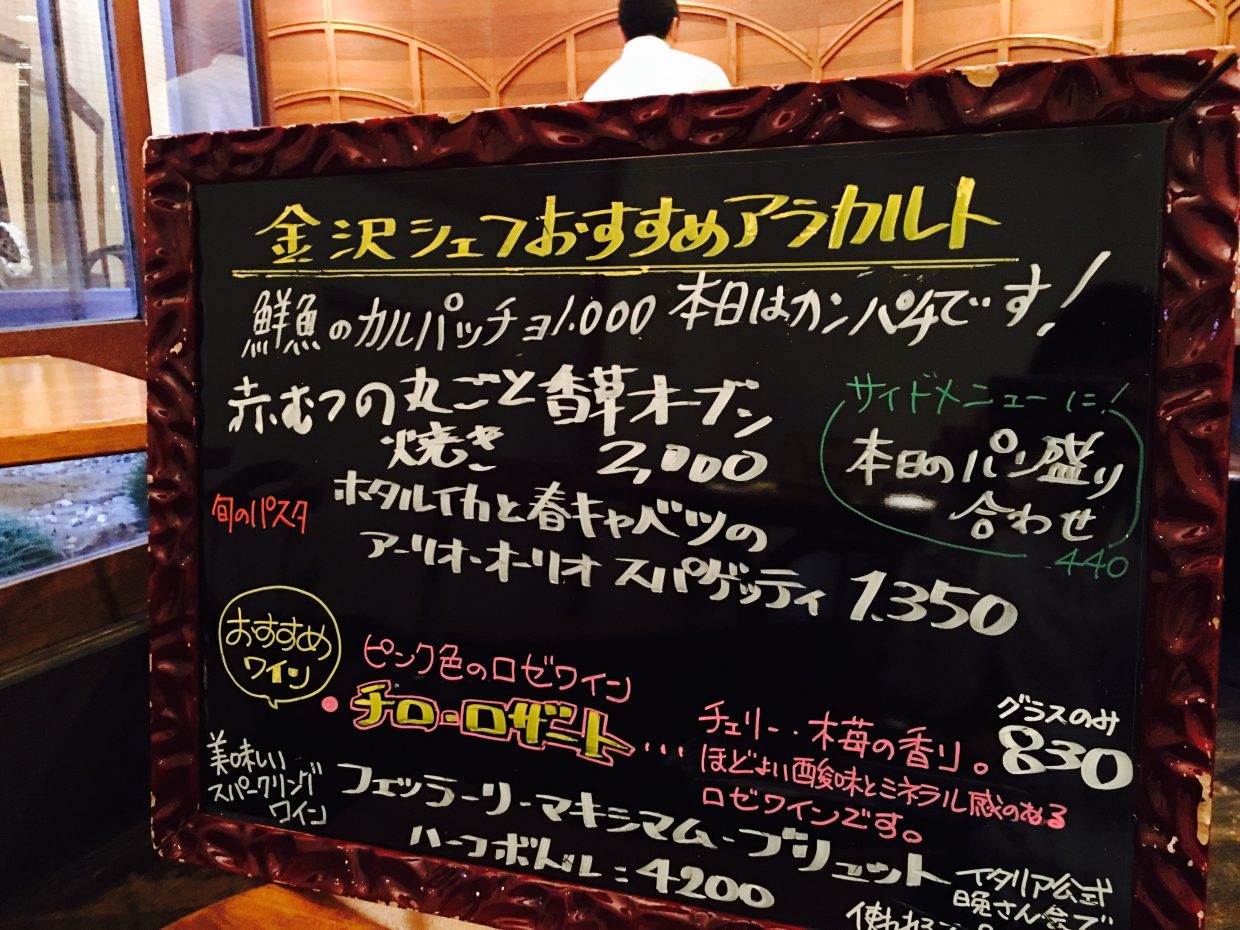 金沢シェフおすすめアラカルト
鮮魚のカルパッチョ1.000 本日はカンパチです!
赤むつの丸ごと香草オーブン
焼き 2,000
サイドメニューに!
本日のパン盛り
合わせ
440
旬のパスタ
ホタルイカと春キャベツの
アーリオ・オーリオ スパゲッティ 1.350
おすすめ
ワイン
ピンク色のロゼワイン
・チロ・ロザート…
チェリー・木苺の香り。
ほどよい酸味とミネラル感のある
ロゼワインです。
グラスのみ
830
美味しい
スパークリング
ワイン
フェッラーリ・マキシマム・ブリュット
ハーフボトル:4200
イタリア公式
晩さん会で
使われ